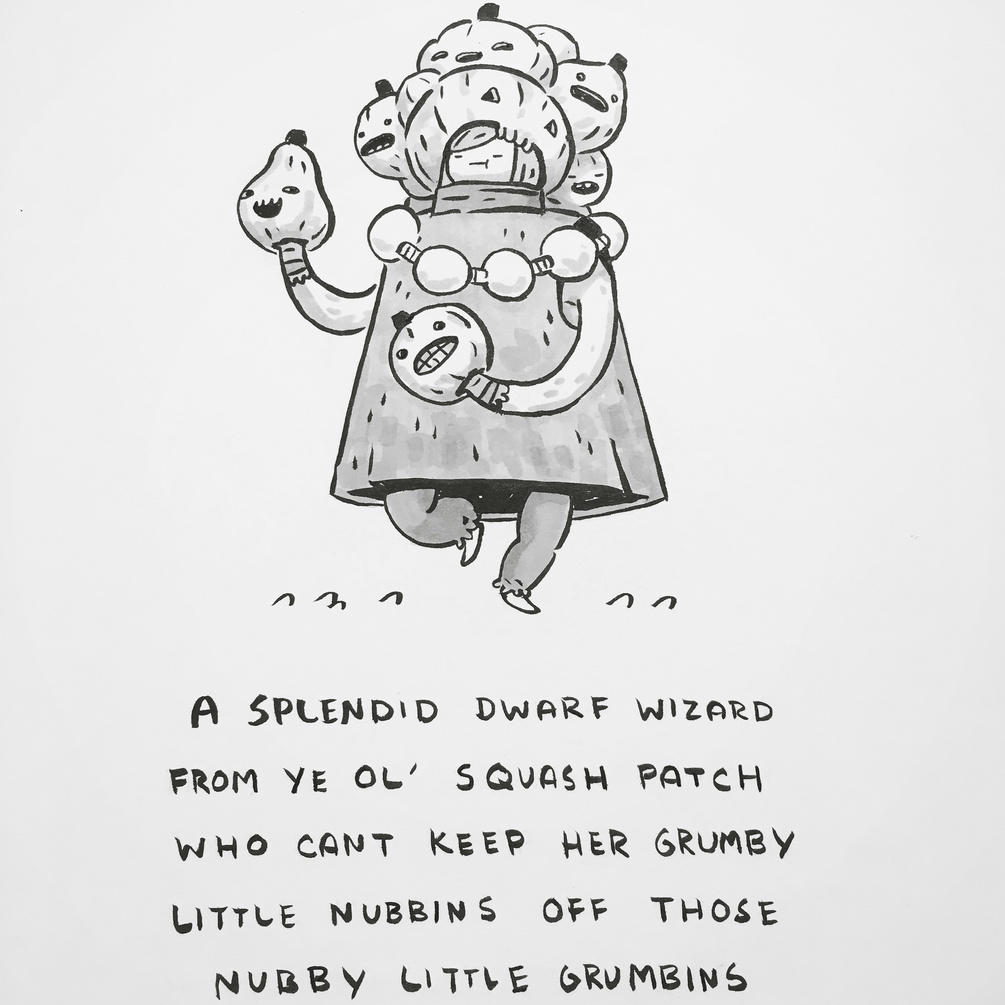 A SPLENDID DWARF WIZARD
FROM YE OL' SQUASH PATCH
WHO CANT KEEP HER GRUMBY
LITTLE NUBBINS OFF THOSE
NUBBY LITTLE GRUMBINS